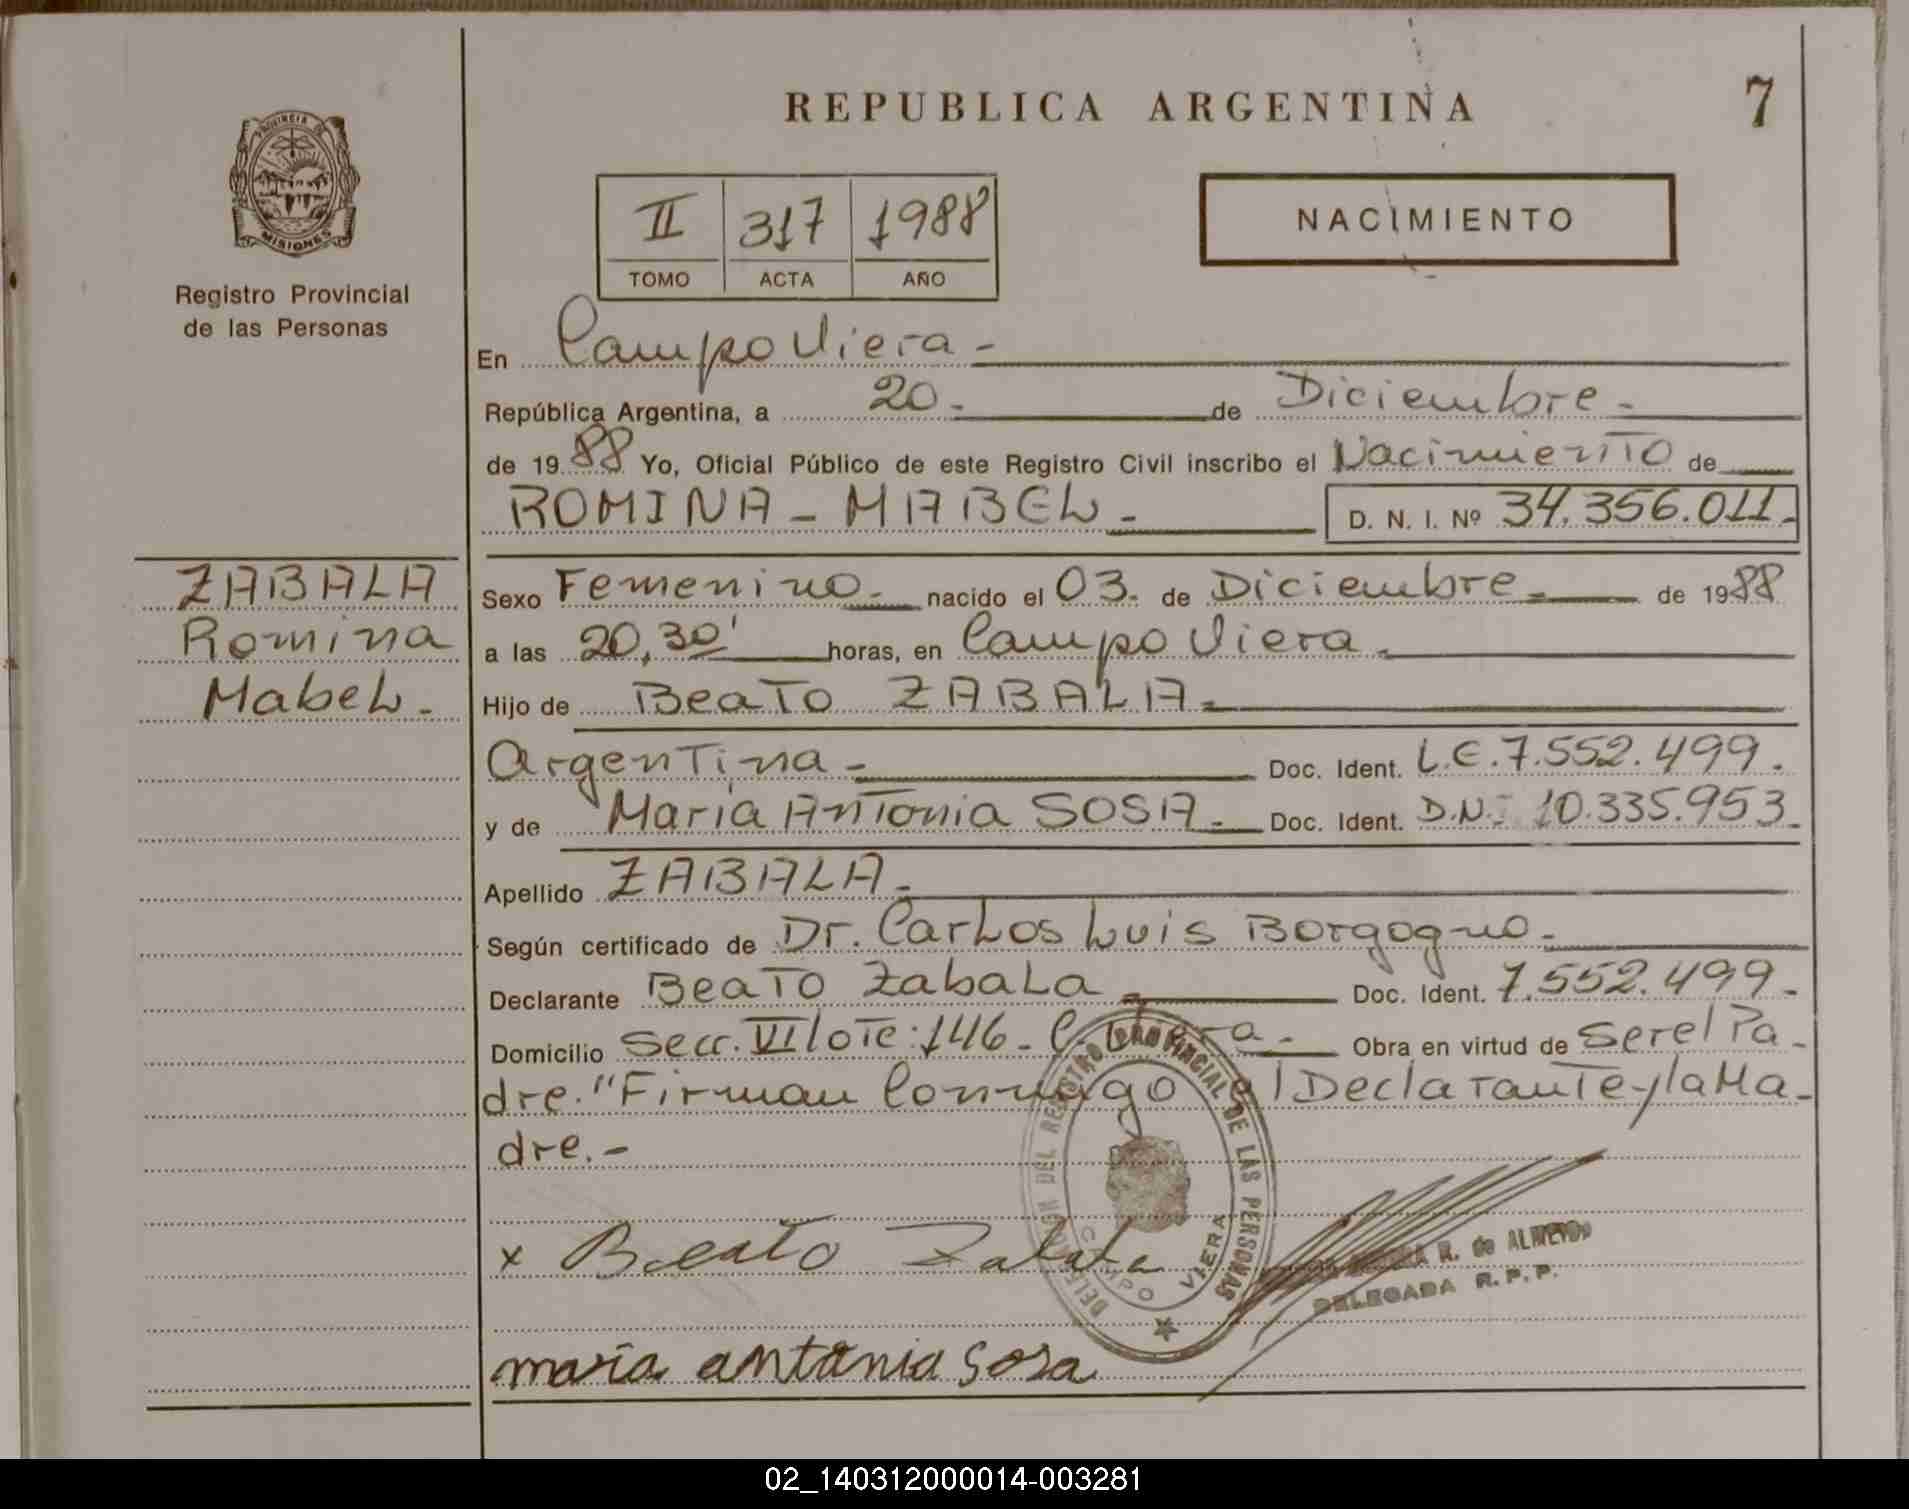 REPUBLICA ARGENTINA
7
PROVINCIA DE
MISIONES
Registro Provincial
de las Personas
II 317 1988
TOMO ACTA AÑO
NACIMIENTO
En Campo Viera -
República Argentina, a 20 - de Diciembre -
de 1988 Yo, Oficial Público de este Registro Civil inscribo el Nacimiento de
ROMINA - MABEL - D. N. I. Nº 34.356.011.-
ZABALA
Romina
Mabel -
Sexo Femenino - nacido el 03. de Diciembre - de 1988
a las 20,30' horas, en Campo Viera -
Hijo de Beato ZABALA -
Argentina - Doc. Ident. L.E. 7.552.499.
y de María Antonia SOSA - Doc. Ident. D.N.I 10.335.953 -
Apellido ZABALA -
Según certificado de Dr. Carlos Luis Borgogno -
Declarante Beato Zabala - Doc. Ident. 7.552.499. -
Domicilio Secc. VI lote: 146 - C. Viera - Obra en virtud de ser el Pa-
dre. "Firman Conmigo el Declarante y la Ma-
dre.-
DELEGACION DEL REGISTRO PROVINCIAL DE LAS PERSONAS
CAMPO VIERA
x Beato Zabala
R. de ALMEIDA
DELEGADA R. P. P.
maria antonia Sosa
02_140312000014-003281